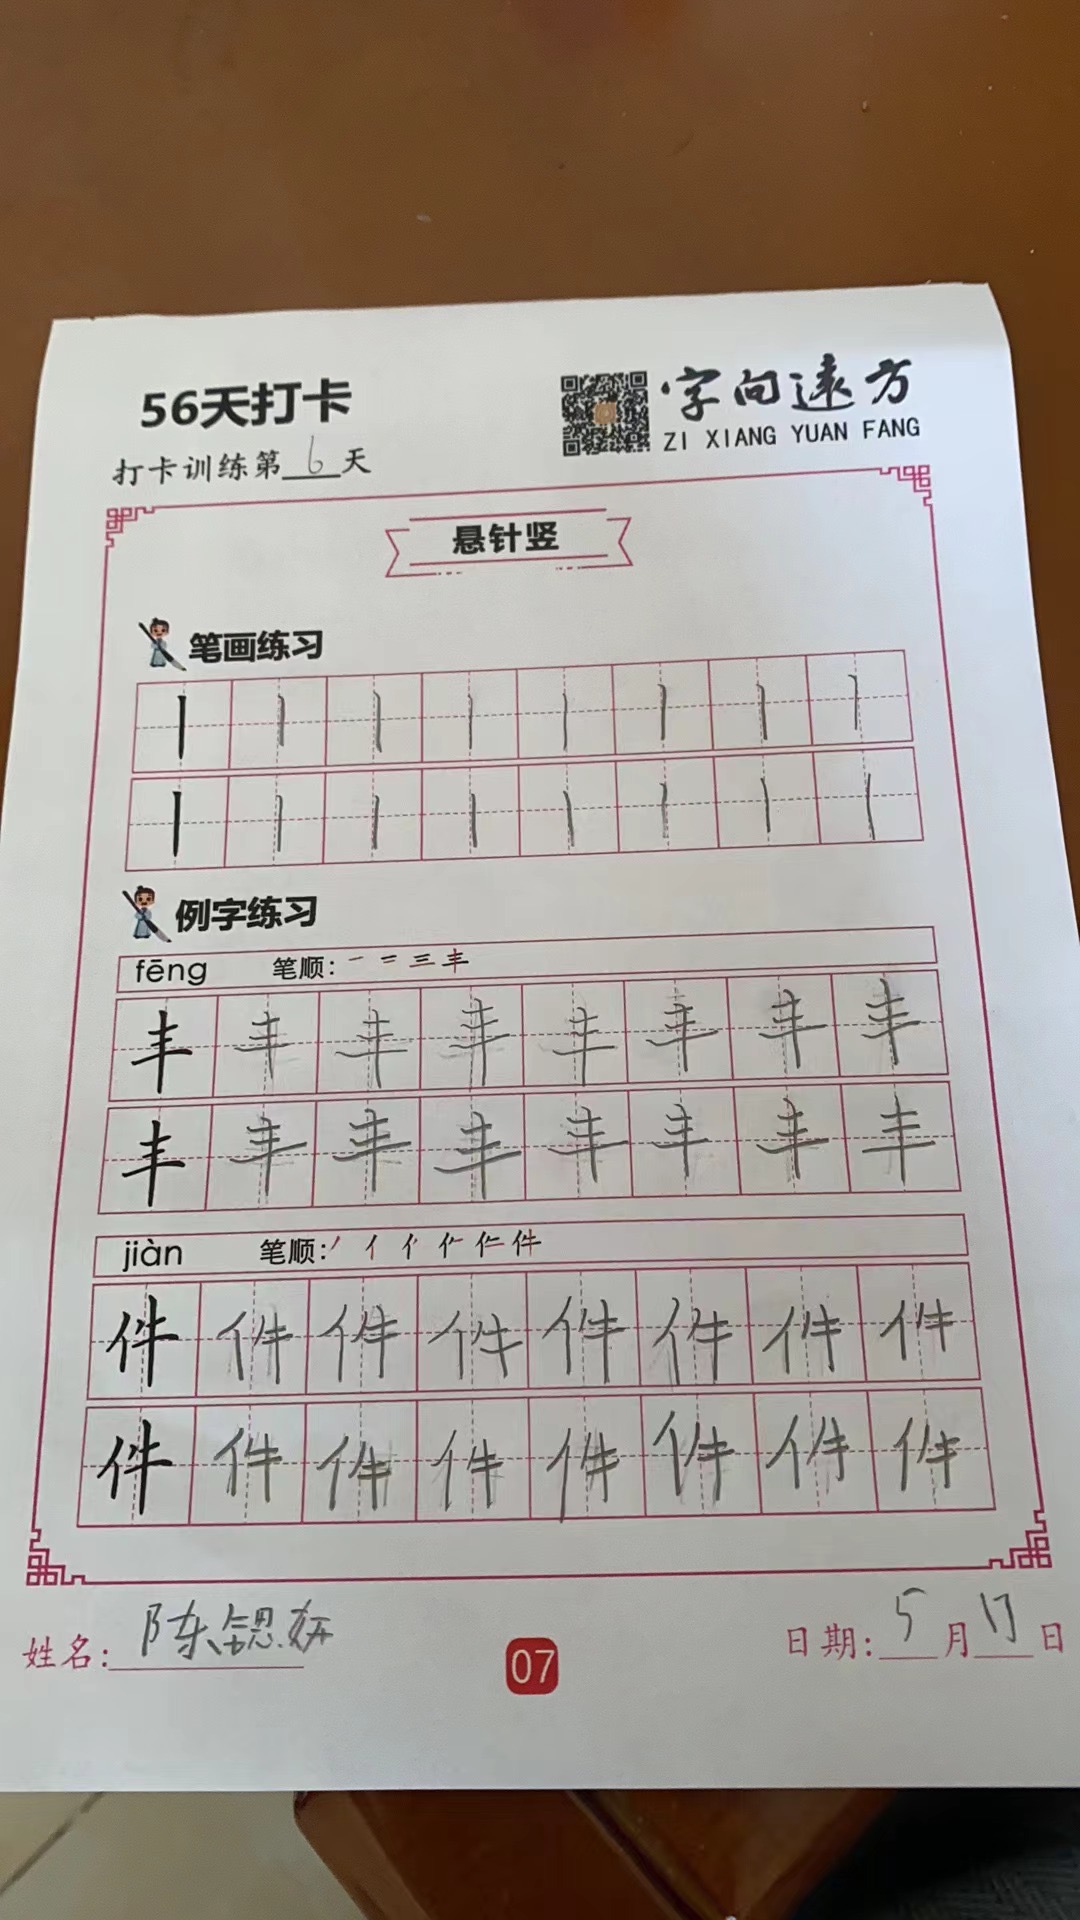 56天打卡
字向远方
ZI XIANG YUAN FANG
打卡训练第6天
悬针竖
笔画练习
丨丨丨丨丨丨丨丨
丨丨丨丨丨丨丨丨
例字练习
fēng 笔顺: 一 二 三 丰
丰丰丰丰丰丰丰丰
丰丰丰丰丰丰丰丰
jiàn 笔顺:
件件件件件件件件
件件件件件件件件
姓名: 陈锶妍
07
日期: 5月17日